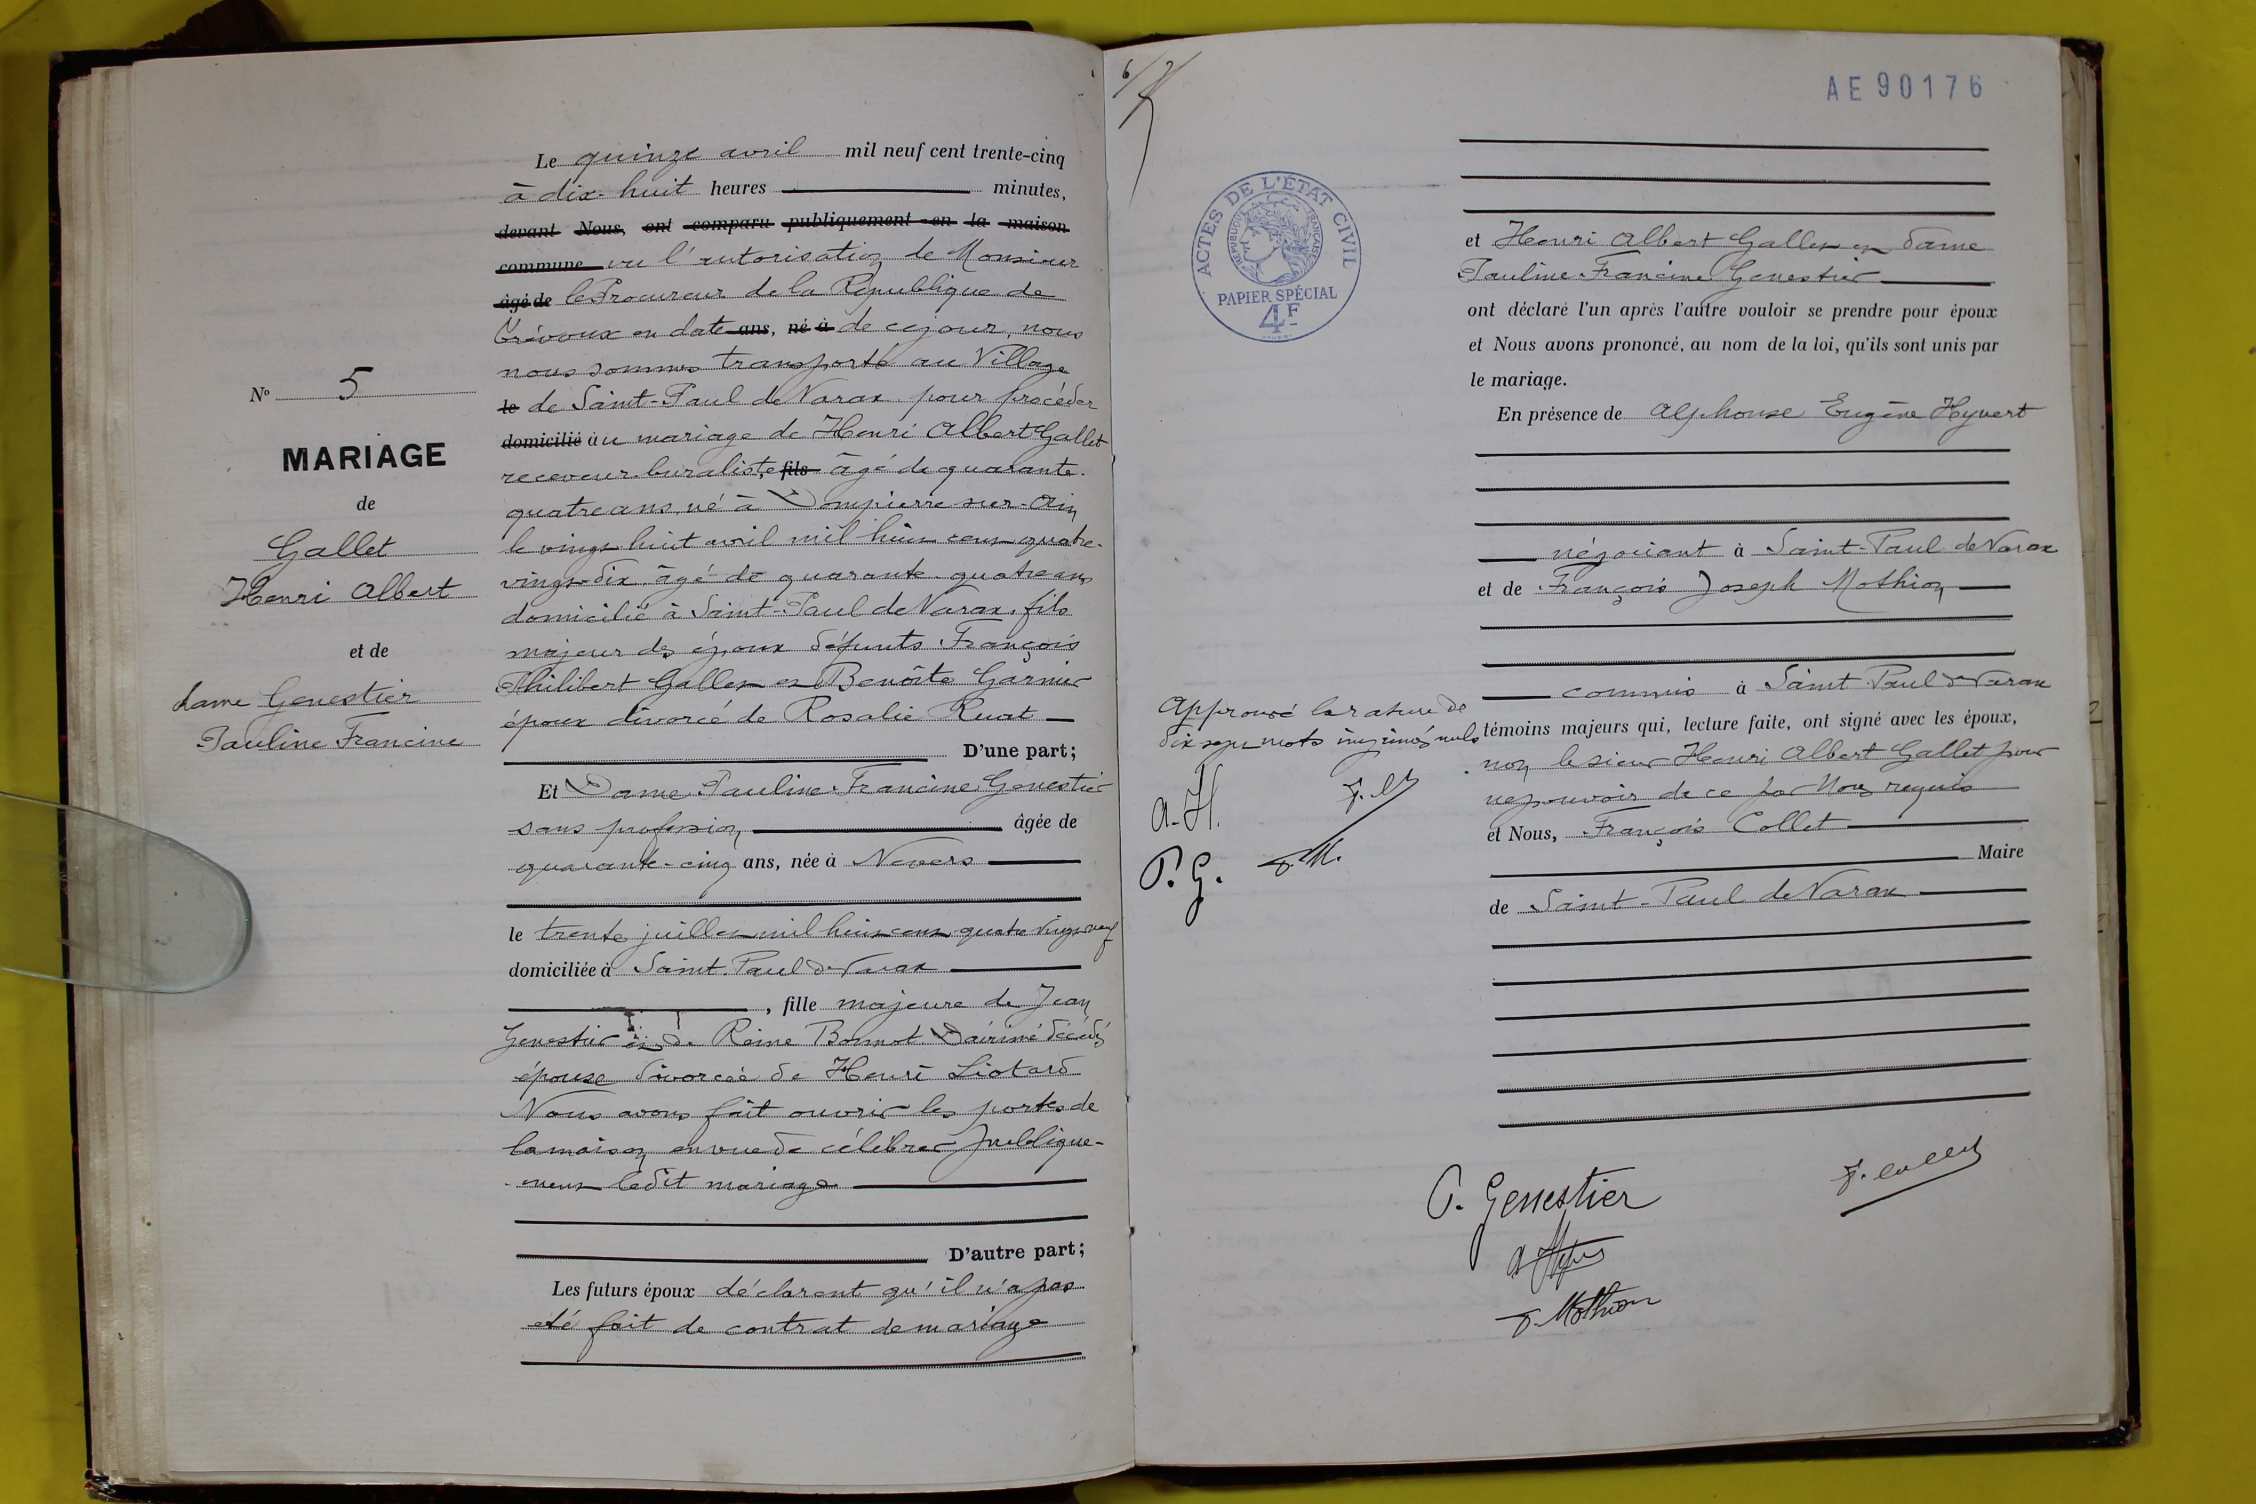 N° 5
MARIAGE
de
Gallet
Henri Albert
et de
dame Genestier
Pauline Francine
Le quinze avril mil neuf cent trente-cinq
à dix-huit heures minutes,
devant Nous, ont comparu publiquement en la maison
commune vu l'autorisation de Monsieur
âgé de le Procureur de la République de
Trévoux en date ans, né à de ce jour, nous
nous sommes transporté au Village
le de Saint-Paul de Varax pour procéder
domicilié au mariage de Henri Albert Gallet
receveur buraliste, fils âgé de quarante-
quatre ans, né à Dompierre-sur-Ain
le vingt huit avril mil huit cent quatre-
vingt-dix, âgé de quarante-quatre ans
domicilié à Saint-Paul de Varax, fils
majeur des époux défunts François
Philibert Gallet et Benoîte Garnier
époux divorcé de Rosalie Ruat
D'une part;
Et Dame Pauline Francine Genestier
sans profession âgée de
quarante-cinq ans, née à Nevers
le trente juillet mil huit cent quatre vingt neuf
domiciliée à Saint-Paul de Varax
, fille majeure de Jean
Genestier et de Reine Bonnot décédés
épouse divorcée de Henri Liotard
Nous avons fait ouvrir les portes de
la maison en vue de célébrer publique-
ment ledit mariage
D'autre part;
Les futurs époux déclarent qu'il n'a pas
été fait de contrat de mariage
AE 90176
ACTES DE L'ÉTAT CIVIL
RÉPUBLIQUE FRANÇAISE
PAPIER SPÉCIAL
4F
et Henri Albert Gallet et dame
Pauline Francine Genestier
ont déclaré l'un après l'autre vouloir se prendre pour époux
et Nous avons prononcé, au nom de la loi, qu'ils sont unis par
le mariage.
En présence de Alphonse Eugène Hyvert
négociant à Saint-Paul de Varax
et de François Joseph Mothion
commis à Saint Paul de Varax
témoins majeurs qui, lecture faite, ont signé avec les époux,
non le sieur Henri Albert Gallet pour
ne pouvoir de ce par Nous requis
et Nous, François Collet
Maire
de Saint-Paul de Varax
Approuvé la rature de
dix sept mots imprimés nuls
A.H.
F.C
P.G.
F.M.
P. Genestier
F. Collet
F. Mothion